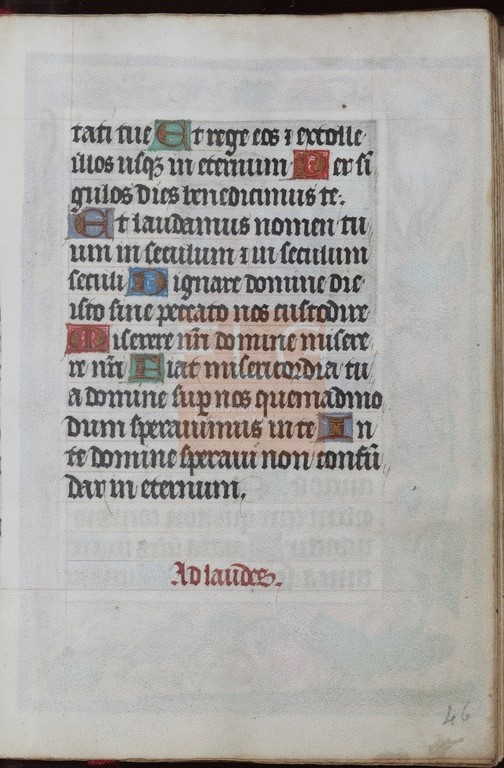 tati tue Et rege eos ⁊ extolle
illos usqꝫ in eternum Per si
gulos dies benedicimus te.
Et laudamus nomen tu
um in seculum ⁊ in seculum
seculi Dignare domine die
isto sine peccato nos custodire
Miserere nr̄i domine misere
re nr̄i Fiat misericordia tu
a domine suꝑ nos quemadmo
dum sperauimus in te In
te domine speraui non confū
dar in eternum.
Ad laudes.
46